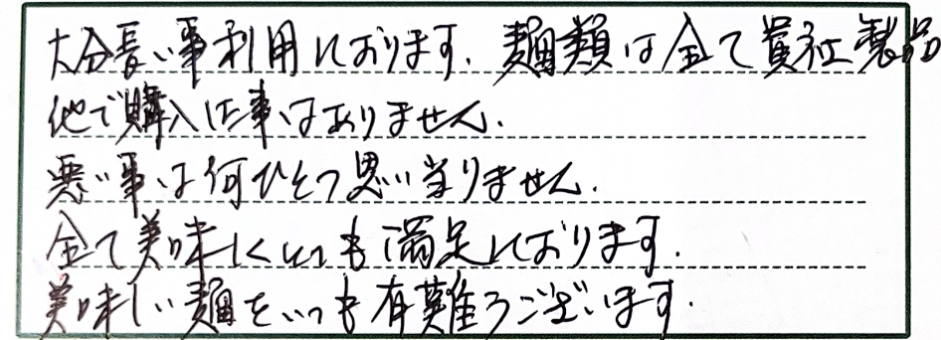 大分長い事利用しております。麺類は全て貴社製品
他で購入した事はありません。
悪い事は何ひとつ思い当りません。
全て美味しくいつも満足しております。
美味しい麺をいつも有難うございます。